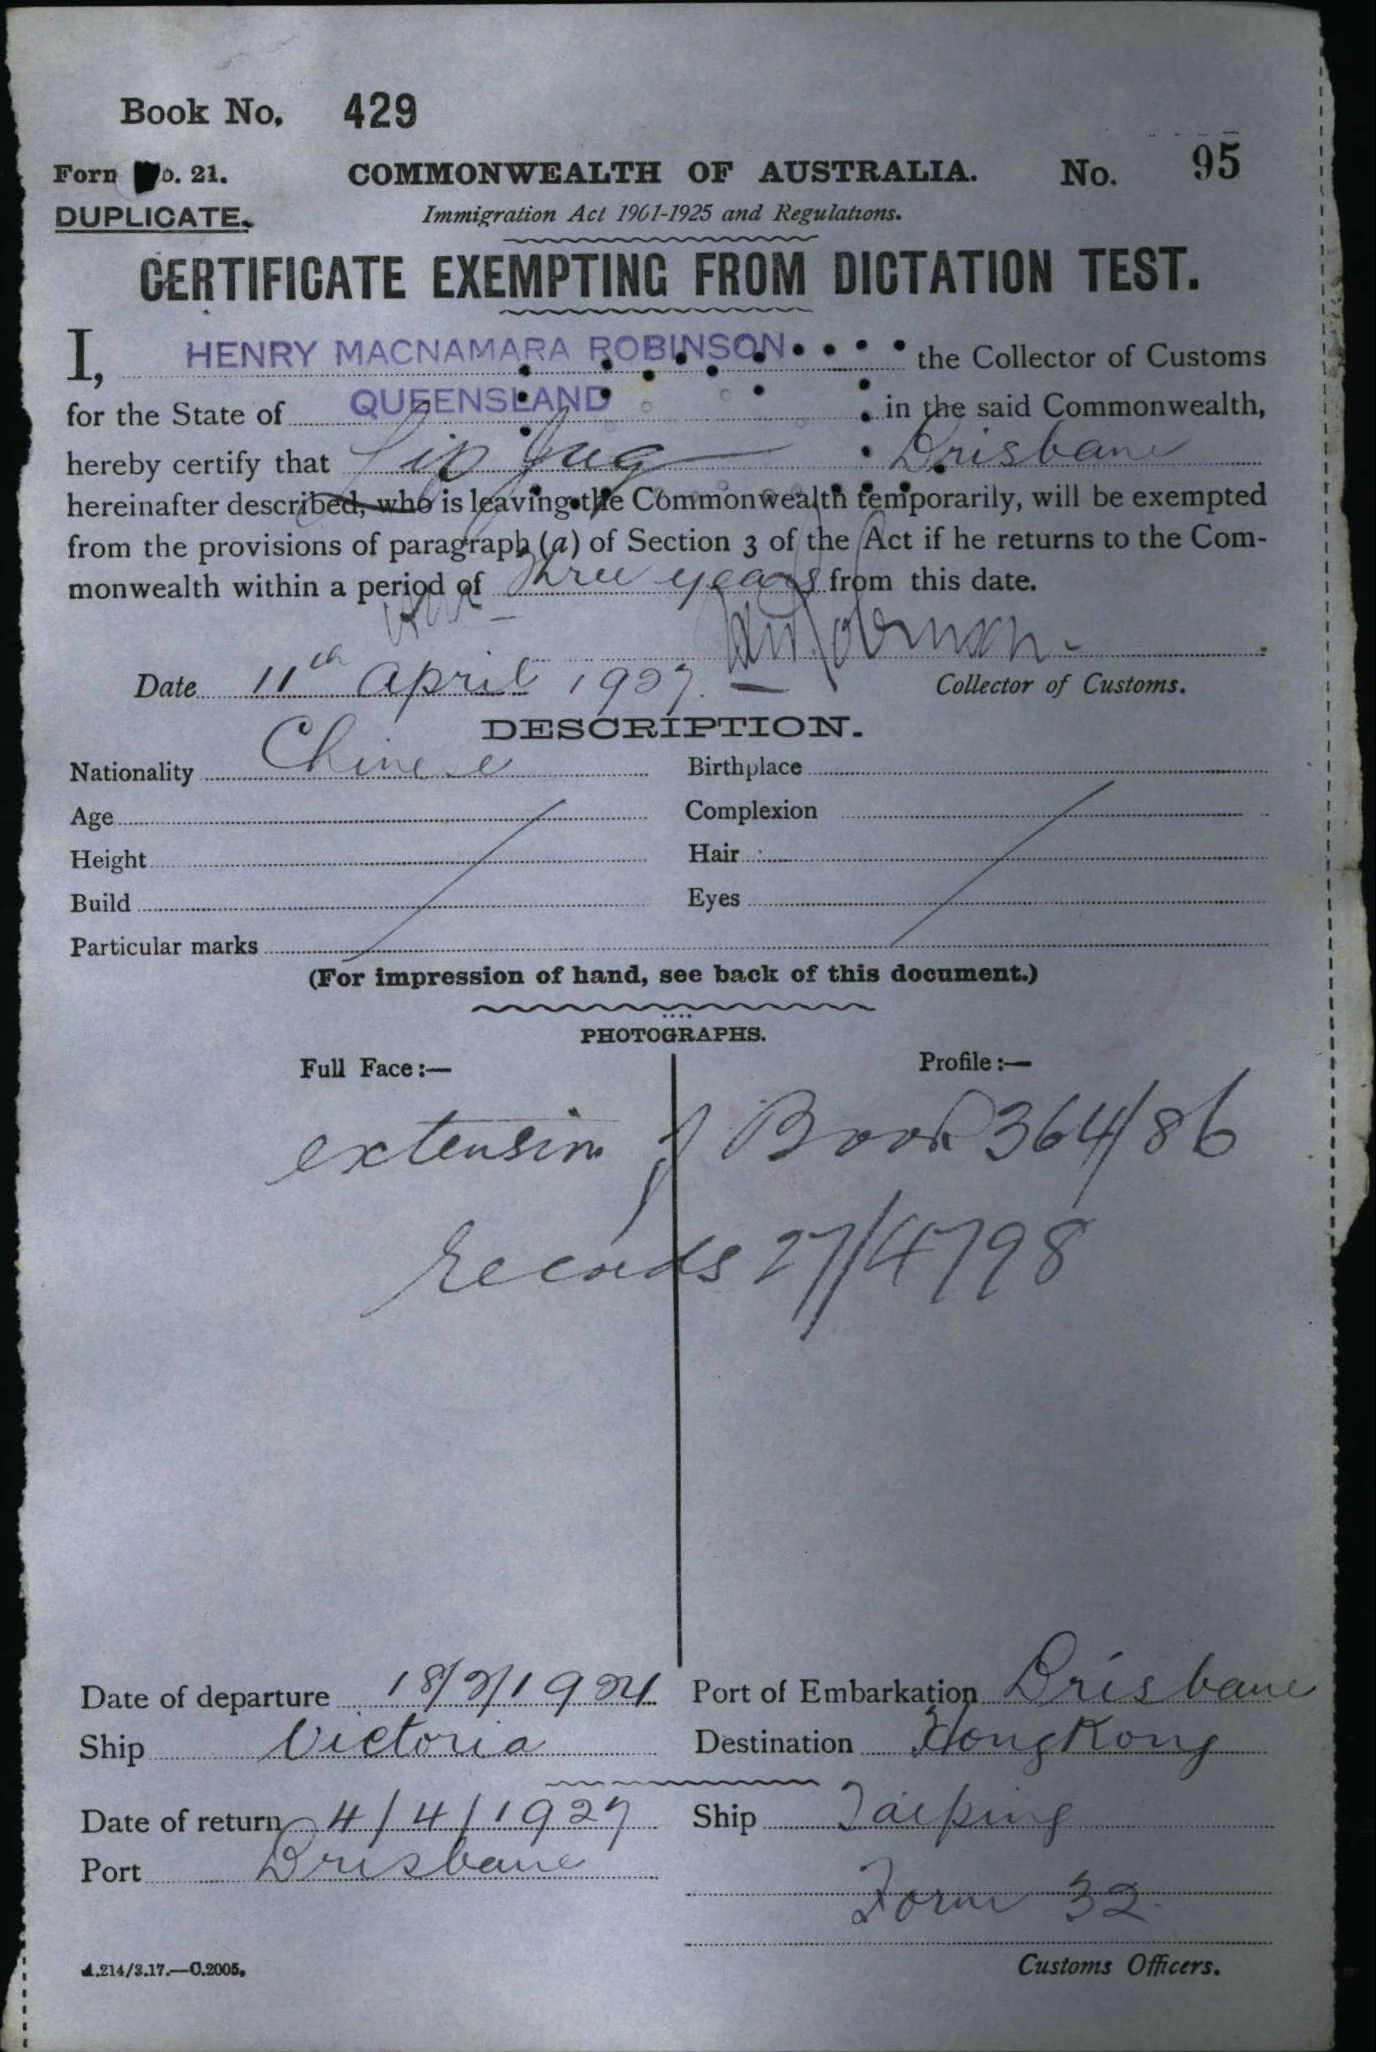 Book No. 429
Form No. 21. COMMONWEALTH OF AUSTRALIA. No. 95
DUPLICATE. Immigration Act 1901-1925 and Regulations.
CERTIFICATE EXEMPTING FROM DICTATION TEST.
I, HENRY MACNAMARA ROBINSON the Collector of Customs
for the State of QUEENSLAND in the said Commonwealth,
hereby certify that Brisbane
hereinafter described, who is leaving the Commonwealth temporarily, will be exempted
from the provisions of paragraph (a) of Section 3 of the Act if he returns to the Com-
monwealth within a period of Three years from this date.
Date 11th April 1927. Collector of Customs.
DESCRIPTION.
Nationality Chinese Birthplace
Age Complexion
Height Hair
Build Eyes
Particular marks
(For impression of hand, see back of this document.)
PHOTOGRAPHS.
Full Face:— Profile:—
extension of Book 364/86
Records 27/4798
Date of departure 18/2/1924 Port of Embarkation Brisbane
Ship Victoria Destination HongKong
Date of return 4/4/1927 Ship Taiping
Port Brisbane
Form 32
A.214/3.17.—C.2005. Customs Officers.